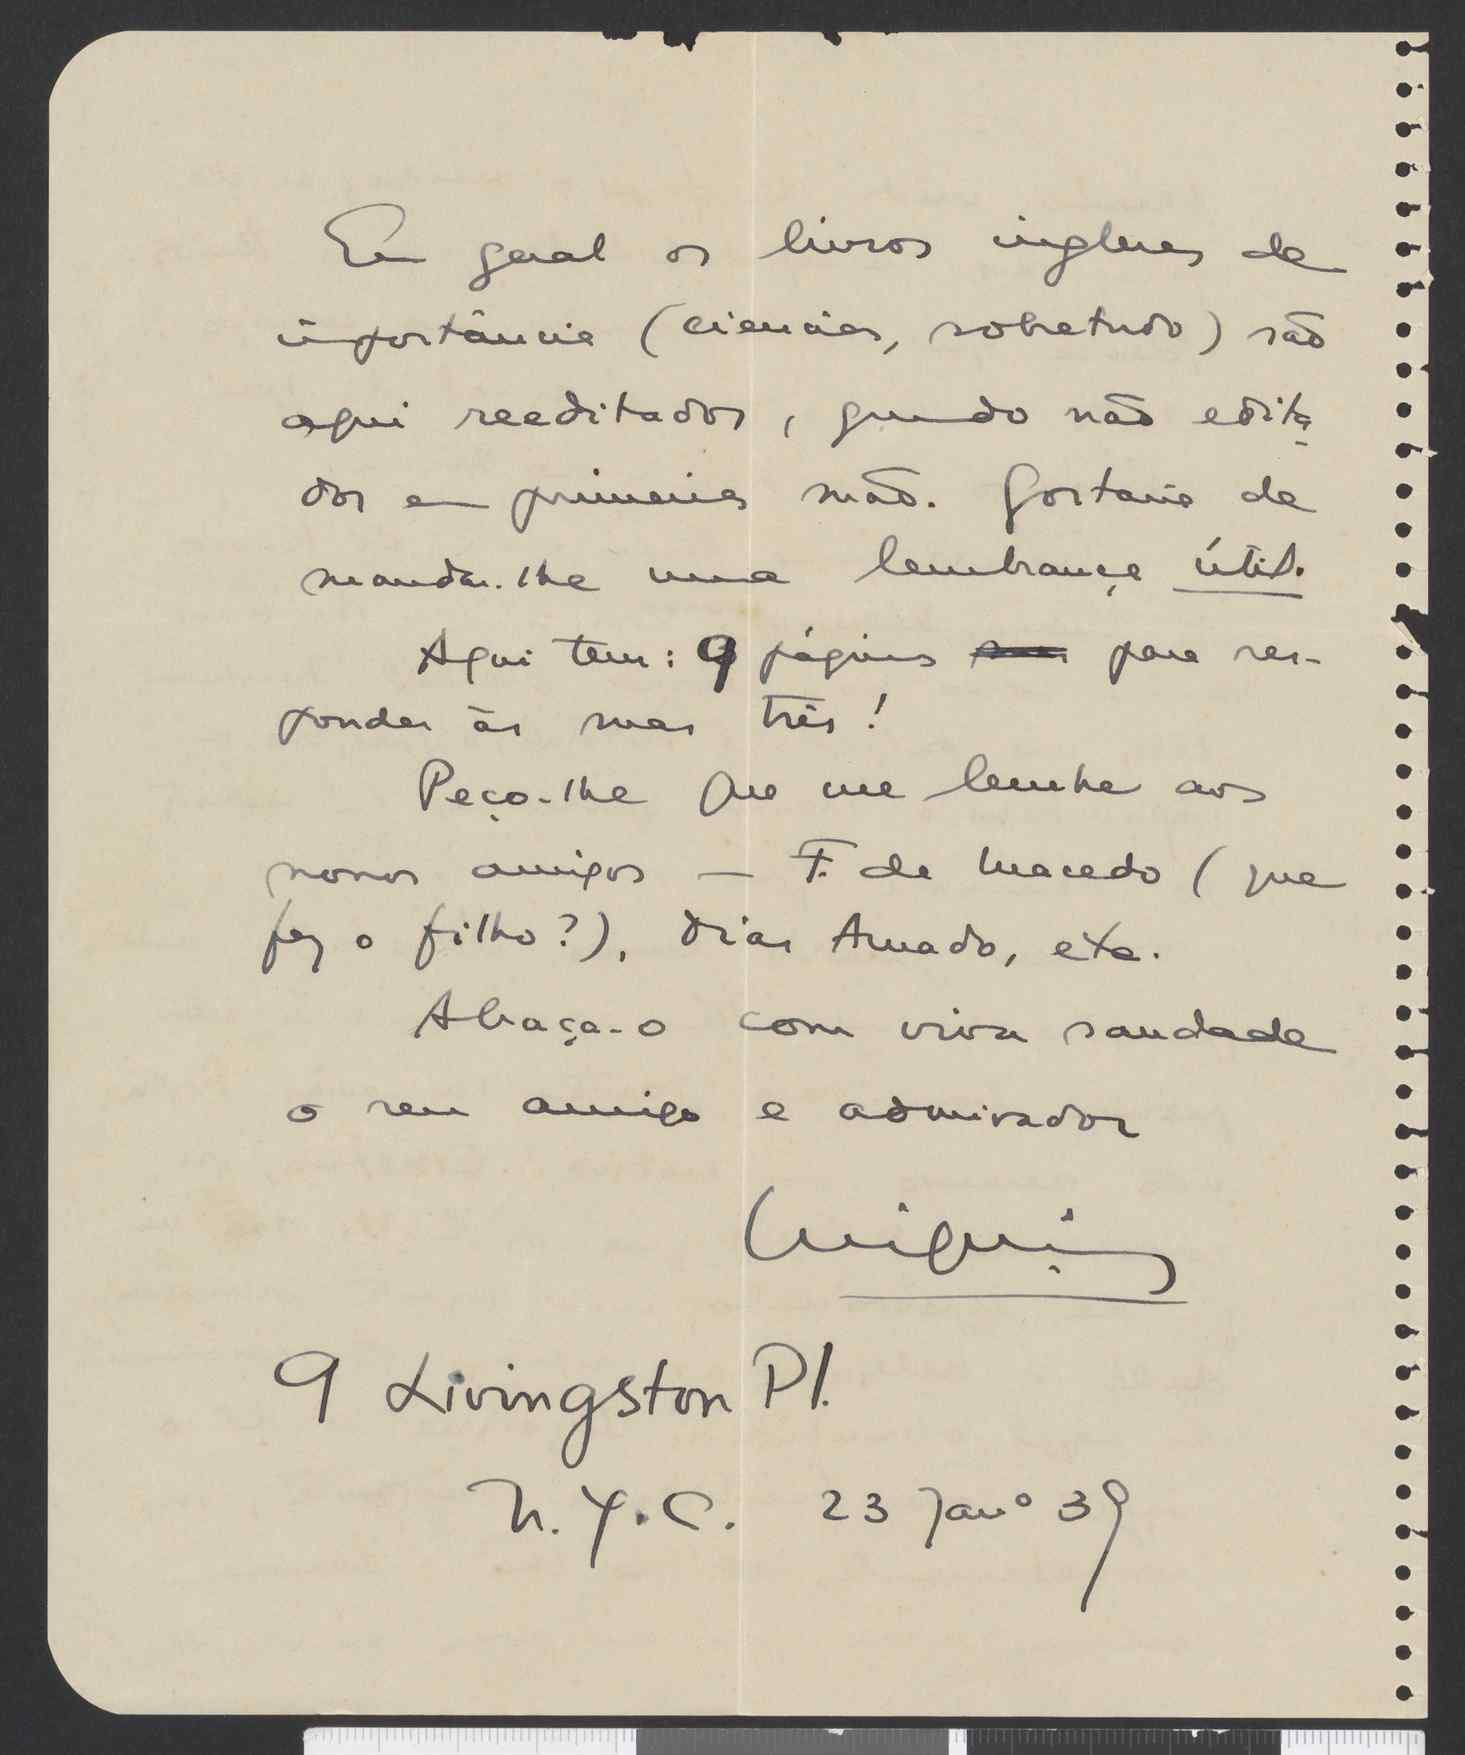 Em geral os livros ingleses de
importância (ciencias, sobretudo) são
aqui reeditados, quando não edita
dos em primeira mão. Gostaria de
mandar-lhe uma lembrança útil.
Aqui tem: 9 páginas para res-
ponder às suas três!
Peço-lhe que me lembre aos
nossos amigos — F. de Macedo (que
fez o filho?), Dias Amado, etc.
Abraça-o com viva saudade
o seu amigo e admirador
Miguéis
9 Livingston Pl.
N.Y.C. 23 Janº 39